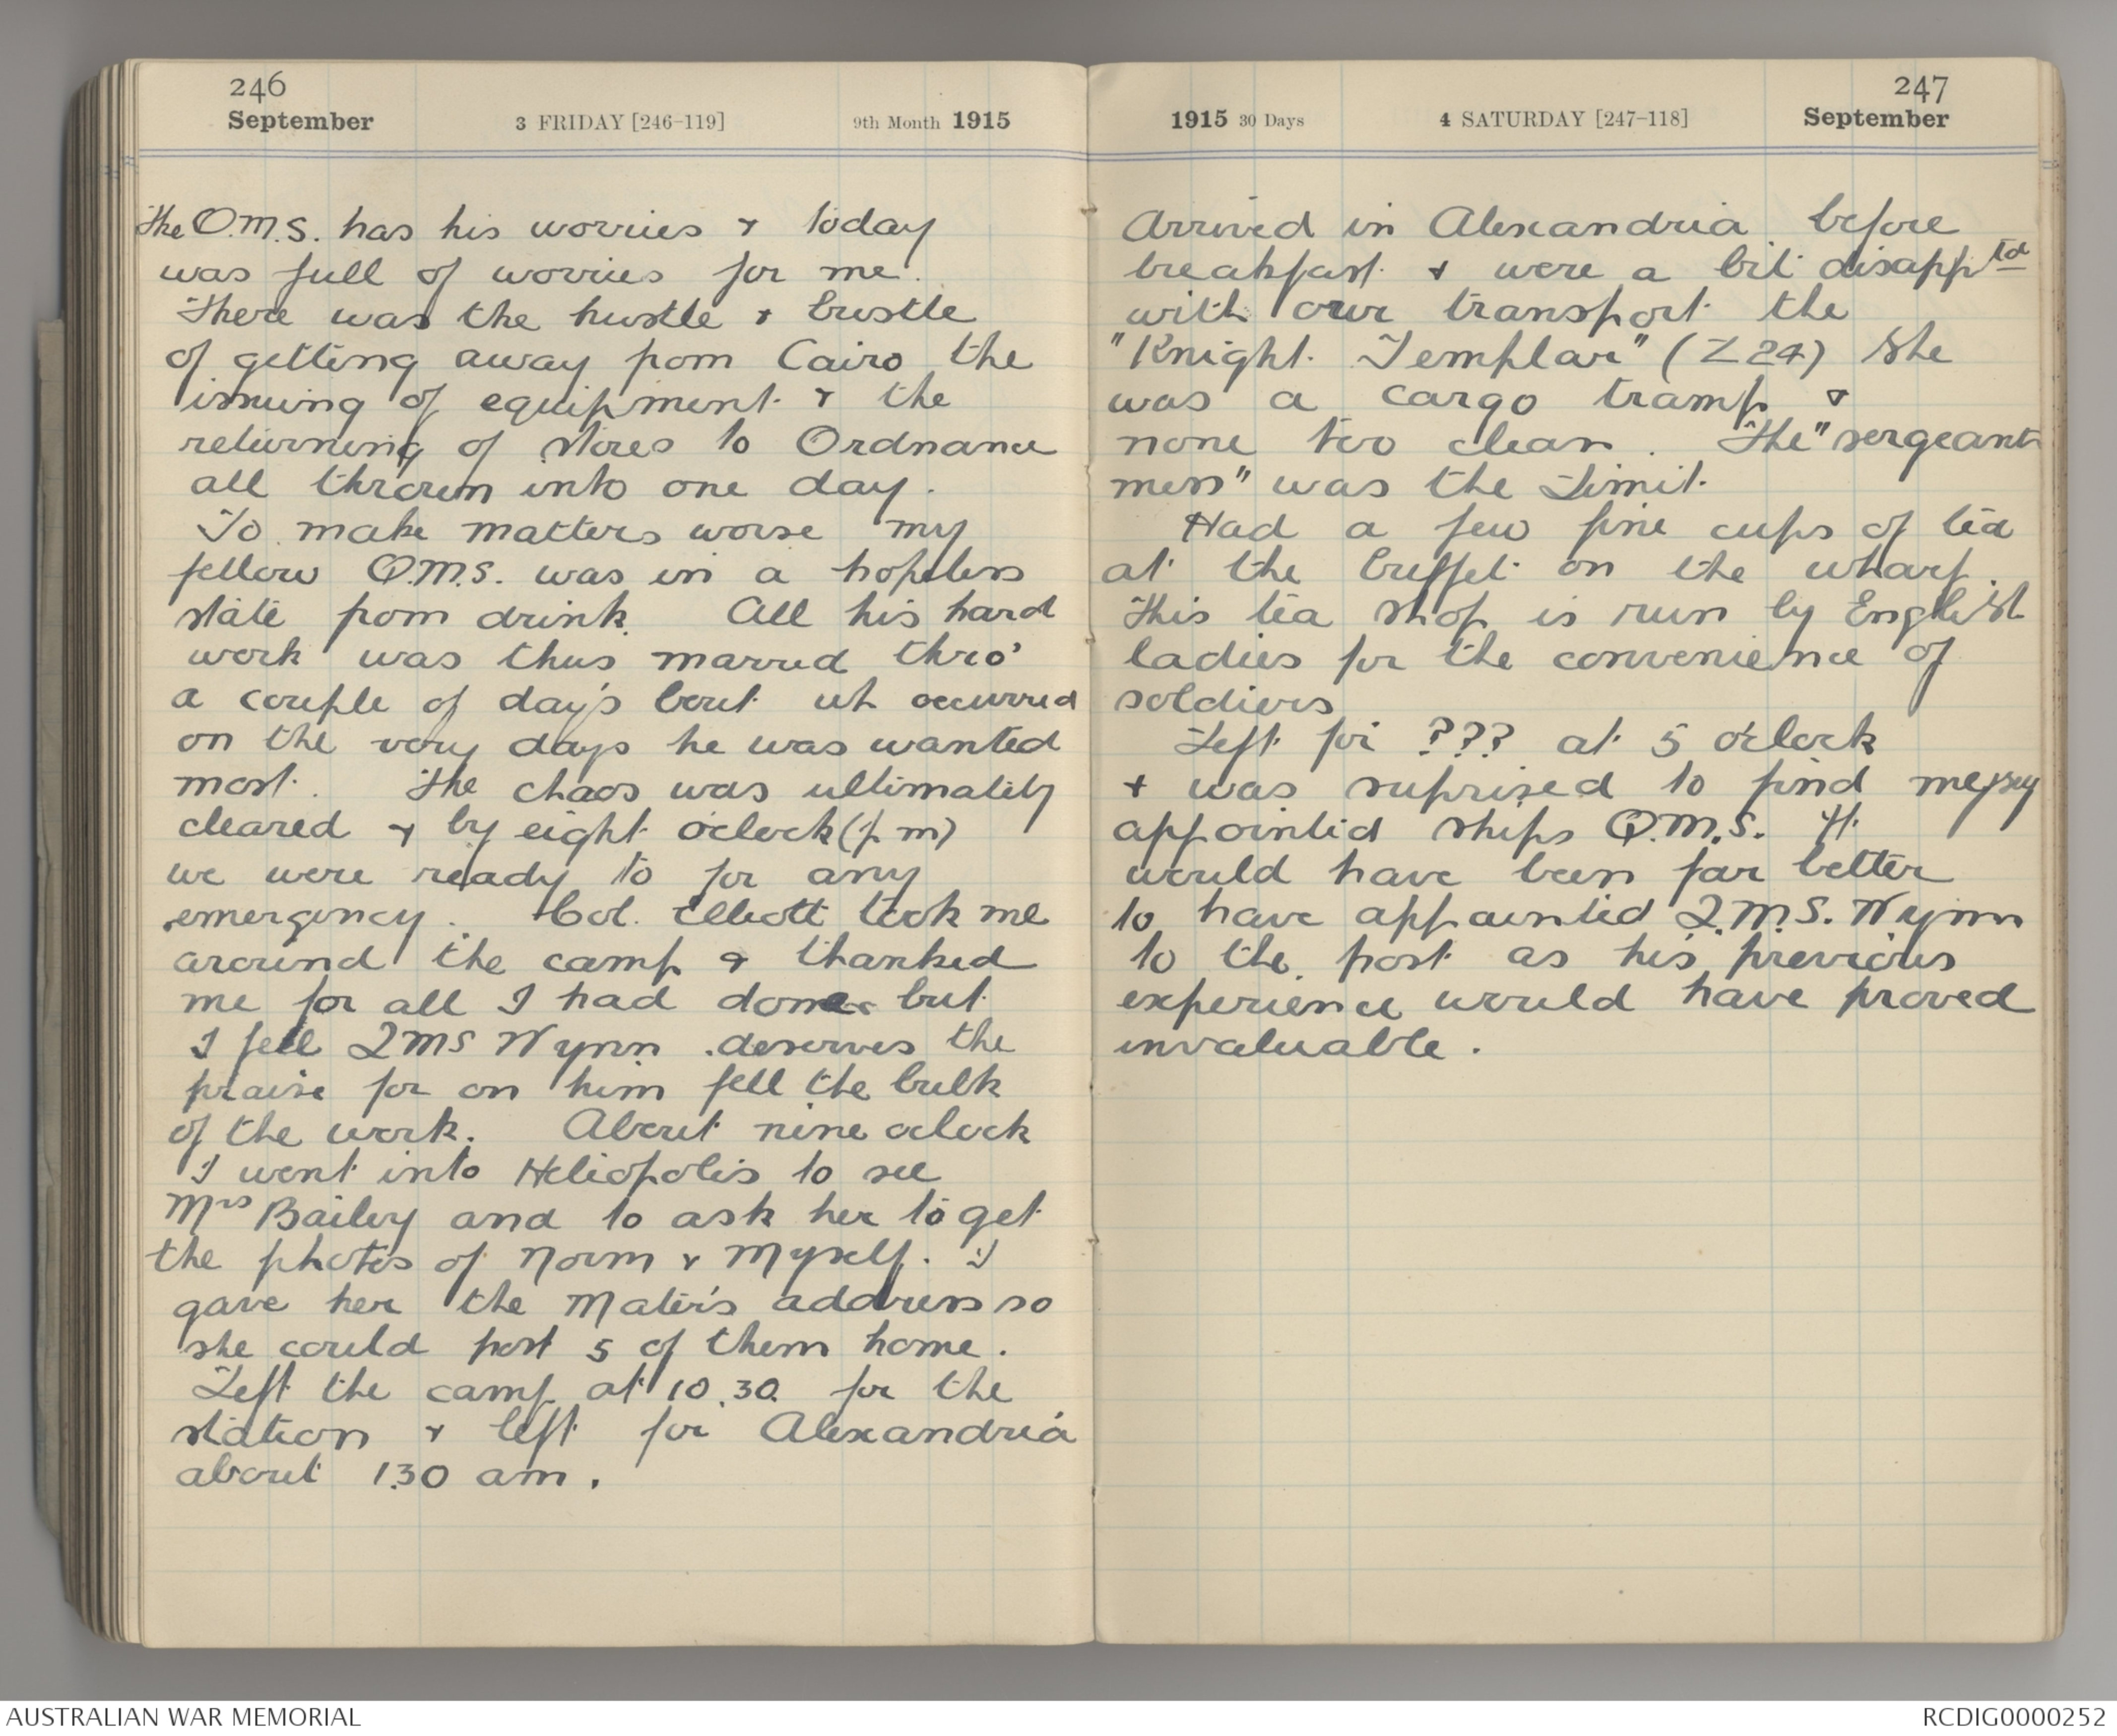 246
September 3 FRIDAY [246-119] 9th Month 1915
The Q.M.S. has his worries & today
was full of worries for me.
There was the hustle & bustle
of getting away from Cairo the
issuing of equipment & the
returning of stores to Ordnance
all thrown into one day.
To make matters worse my
fellow Q.M.S. was in a hopeless
state from drink. All his hard
work was thus marred thro'
a couple of day's bout wh occurred
on the very days he was wanted
most. The chaos was ultimately
cleared & by eight o'clock (p m)
we were ready to for any
emergency. Col. Elliott took me
around the camp & thanked
me for all I had done but
I feel QMS Wynn deserves the
praise for on him fell the bulk
of the work. About nine oclock
I went into Heliopolis to see
Mrs Bailey and to ask her to get
the photos of Norm & Myself. I
gave her the Mater's address so
she could post 5 of them home.
Left the camp at 10.30. for the
station & left for Alexandria
about 1.30 am.
247
1915 30 Days 4 SATURDAY [247-118] September
Arrived in Alexandria before
breakfast & were a bit disapptd
with our transport the
"Knight Templar" (Z24) She
was a cargo tramp &
none too clean. The "sergeant
mess" was the Limit.
Had a few fine cups of tea
at the buffet on the wharf.
This tea shop is run by English
ladies for the convenience of
soldiers
Left for ??? at 5 o'clock
& was suprised to find
appointed ships Q.M.S. It
would have been far better
to have appointed Q.M.S. Wynn
to the post as his previous
experience would have proved
invaluable.
AUSTRALIAN WAR MEMORIAL RCDIG0000252